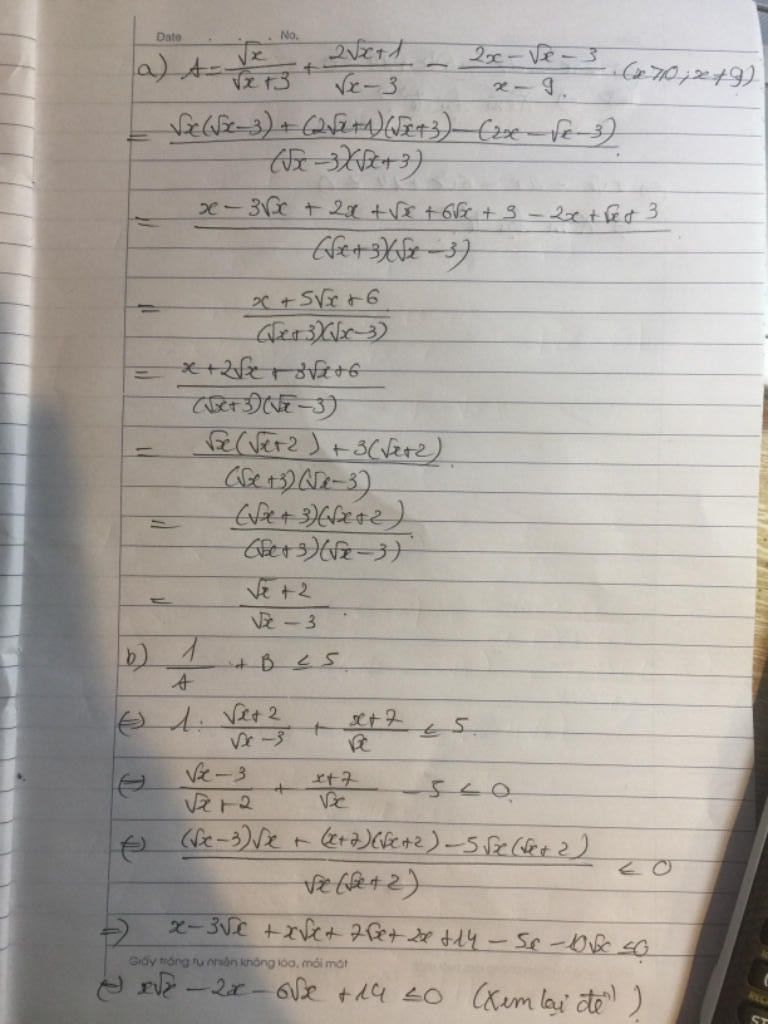 Date No.
a) A = √x/(√x+3) + (2√x+1)/(√x-3) - (2x-√x-3)/(x-9) . (x≥0; x≠9)
= (√x(√x-3) + (2√x+1)(√x+3) - (2x-√x-3))/((√x-3)(√x+3))
= (x - 3√x + 2x + √x + 6√x + 3 - 2x + √x + 3)/((√x+3)(√x-3))
= (x + 5√x + 6)/((√x+3)(√x-3))
= (x + 2√x + 3√x + 6)/((√x+3)(√x-3))
= (√x(√x+2) + 3(√x+2))/((√x+3)(√x-3))
= ((√x+3)(√x+2))/((√x+3)(√x-3))
= (√x+2)/(√x-3) .
b) 1/A + B ≤ 5
⇔ 1 : (√x+2)/(√x-3) + (x+7)/√x ≤ 5
⇔ (√x-3)/(√x+2) + (x+7)/√x - 5 ≤ 0
⇔ ((√x-3)√x + (x+7)(√x+2) - 5√x(√x+2))/(√x(√x+2)) ≤ 0
⇒ x - 3√x + x√x + 7√x + 2x + 14 - 5x - 10√x ≤ 0
Giấy trắng tự nhiên không lóa, mỏi mắt
⇔ x√x - 2x - 6√x + 14 ≤ 0 (Xem lại đề!)